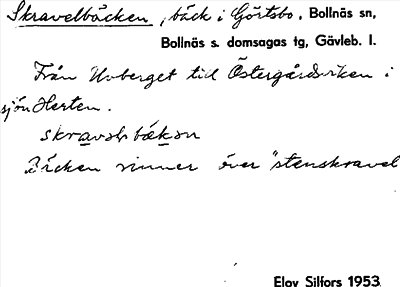 Skravelbäcken, bäck i Görtsbo, Bollnäs sn,
Bollnäs s. domsagas tg, Gävleb. l.
Från Uvberget till Östergårdsviken i
sjön Herten.
skravəlbäkən
Bäcken rinner över "stenskravel
Elov Silfors 1953